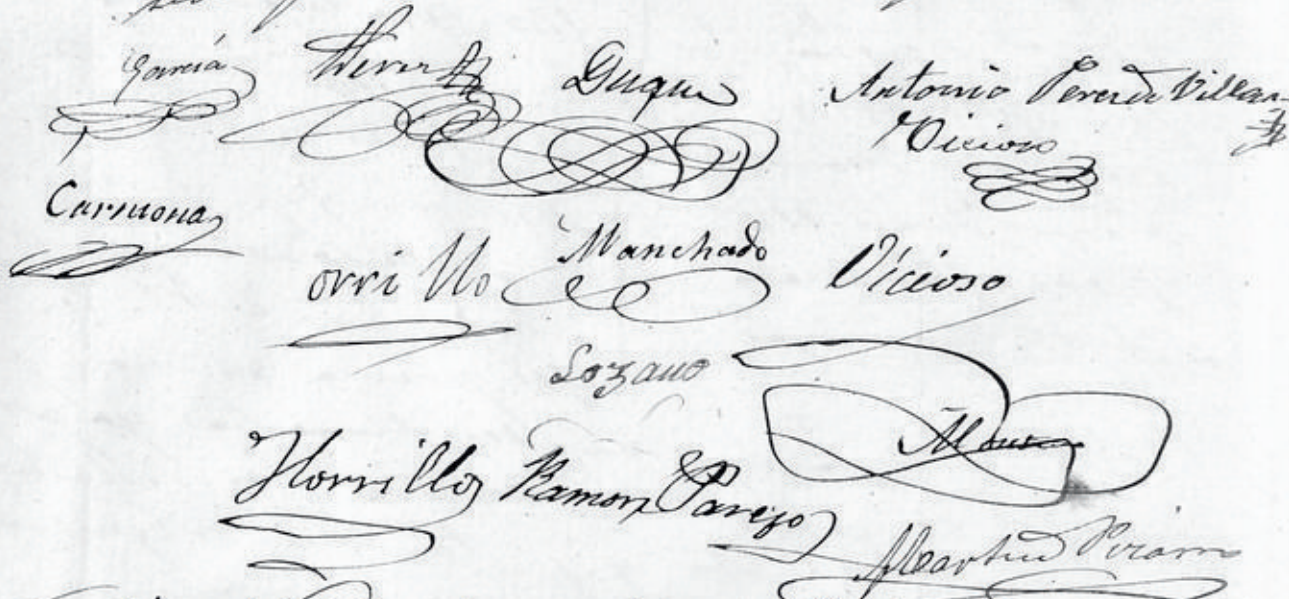 García Duque Antonio Perez de Villar
Vicioso
Carmona
orrillo Manchado Vicioso
Lozano
Horrillo Ramon Parejo
Martin